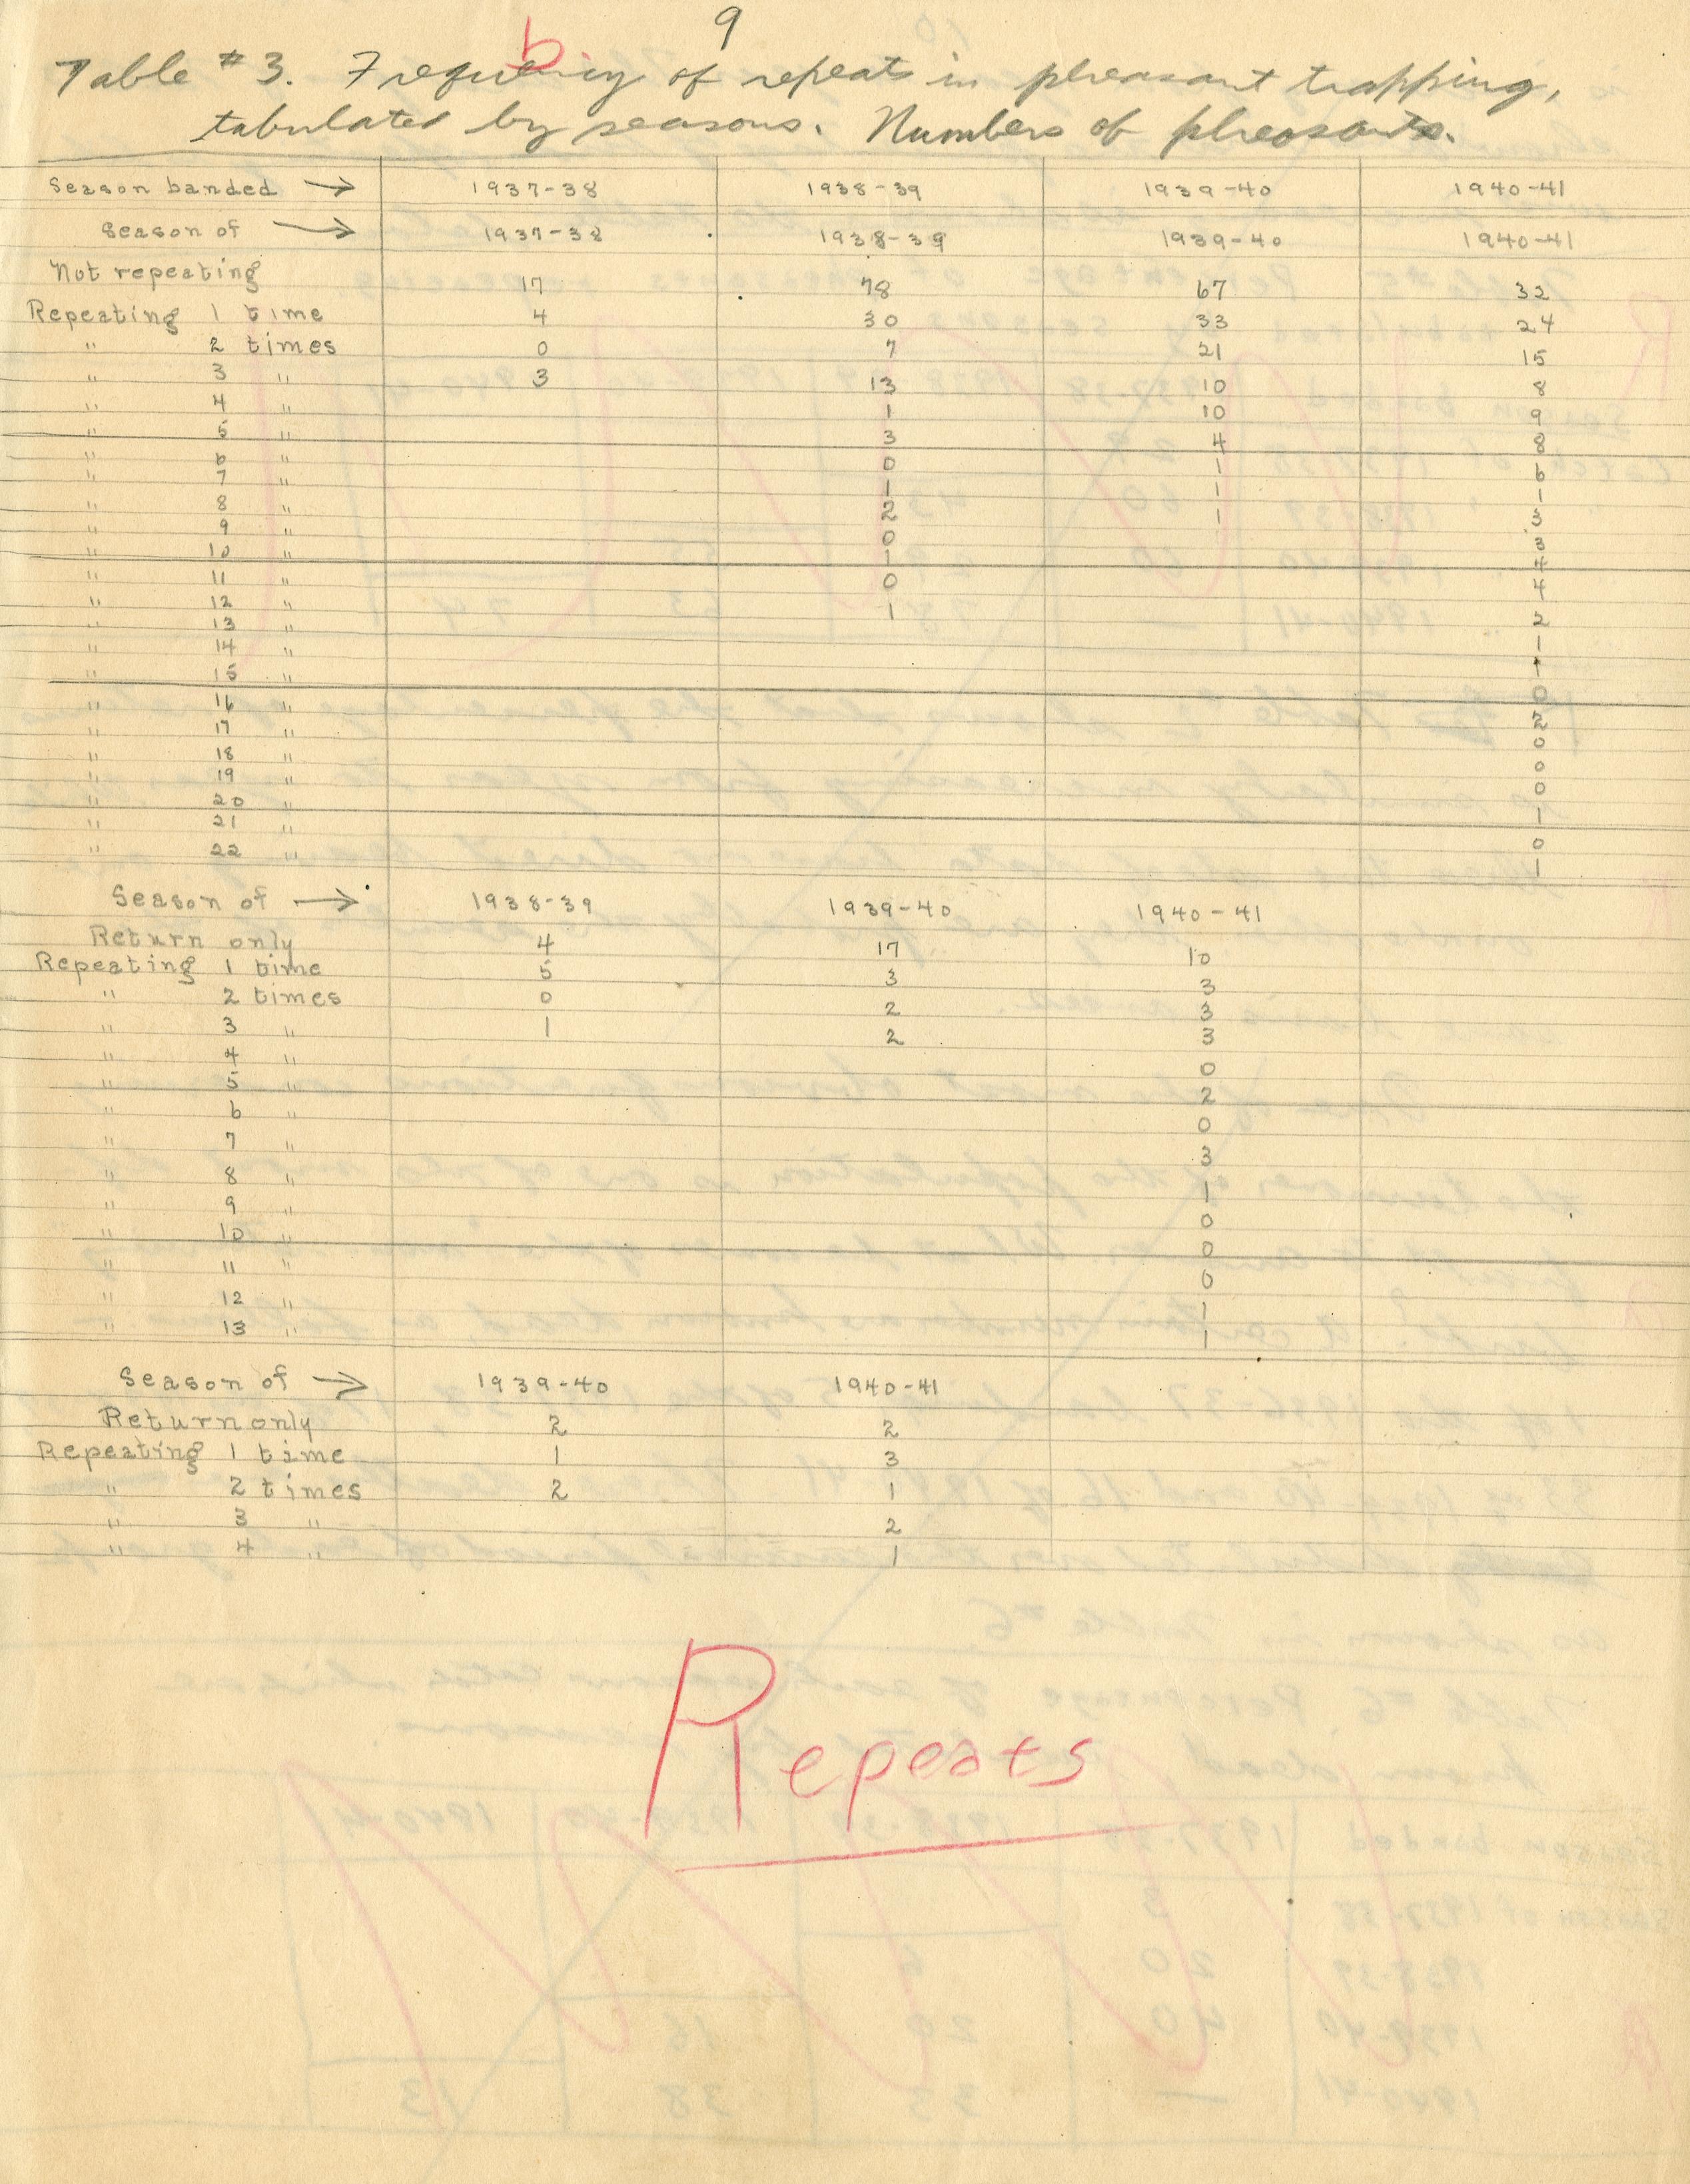 b 9
Table #3. Frequency of repeats in pheasant trapping,
tabulated by seasons. Numbers of pheasants.
Season banded → 1937-38 1938-39 1939-40 1940-41
Season of → 1937-38 1938-39 1939-40 1940-41
Not repeating 17 78 67 32
Repeating 1 time 4 30 33 24
" 2 times 0 7 21 15
" 3 " 3 13 10 8
" 4 " 1 10 9
" 5 " 3 4 8
" 6 " 0 1 6
" 7 " 1 1 1
" 8 " 2 1 3
" 9 " 0 3
" 10 " 1 4
" 11 " 0 4
" 12 " 1 2
" 13 " 1
" 14 " 1
" 15 " 0
" 16 " 2
" 17 " 0
" 18 " 0
" 19 " 0
" 20 " 1
" 21 " 0
" 22 " 1
Season of → 1938-39 1939-40 1940-41
Return only 4 17 10
Repeating 1 time 5 3 3
" 2 times 0 2 3
" 3 " 1 2 3
" 4 " 0
" 5 " 2
" 6 " 0
" 7 " 3
" 8 " 1
" 9 " 0
" 10 " 0
" 11 " 0
" 12 " 1
" 13 " 1
Season of → 1939-40 1940-41
Return only 2 2
Repeating 1 time 1 3
" 2 times 2 1
" 3 " 2
" 4 " 1
Repeats